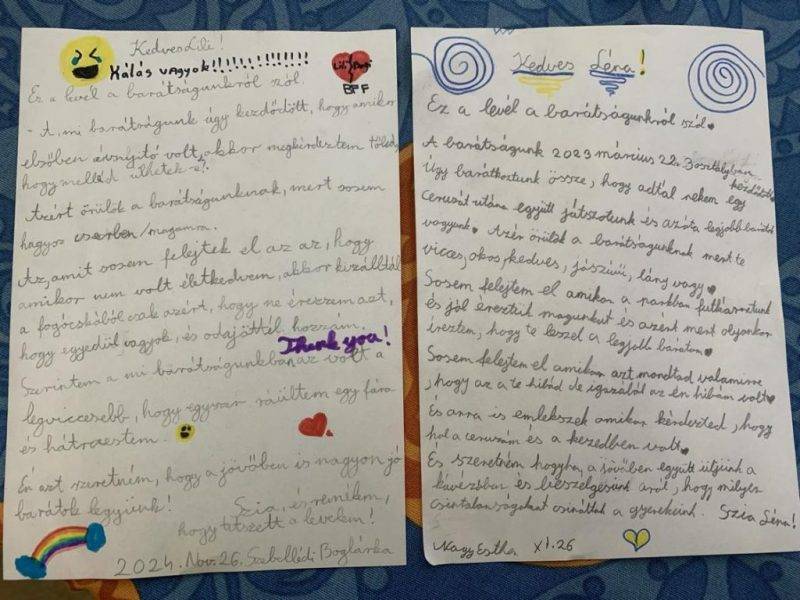 Kedves Lili!
Hálás vagyok!!!!!!!!!!!!!
Lili Bogi
BFF
Ez a levél a barátságunkról szól.
- A mi barátságunk úgy kezdődött, hogy amikor
elsőben évnyitó volt, akkor megkérdeztem tőled,
hogy melléd ülhetek-e?
Azért örülök a barátságunknak, mert sosem
hagyos cserben/magamra.
Az, amit sosem felejtek el az az, hogy
amikor nem volt életkedvem, akkor kiszálltál
a fogócskából csak azért, hogy ne érezzem azt,
hogy egyedül vagyok, és odajöttél hozzám.
Thank you!
Szerintem a mi barátságunkban az volt a
legviccesebb, hogy egyszer ráültem egy fára
és hátraestem.
Én azt szeretném, hogy a jövőben is nagyon jó
barátok legyünk!
Szia, és remélem,
hogy tetszett a levelem!
2024. Nov. 26. Szebellédi Boglárka
Kedves Léna!
Ez a levél a barátságunkról szól
A barátságunk 2023 március 22. 3 osztályban
kezdődött
Úgy barátkoztunk össze, hogy adtál nekem egy
ceruzát utána együtt játszotunk és azóta legjobb barátok
vagyunk. Azér örülök a barátságunknak mert te
vicces, okos, kedves, jószívű, lány vagy
Sosem felejtem el amikor a parkban futkároztunk
és jól éreztük magunkat és azért mert olyankor
éreztem, hogy te leszel a legjobb barátom
Sosem felejtem el amikor azt mondtad valamire
, hogy az a te hibád de igazából az én hibám volt
És arra is emlékszek amikor kérdezted, hogy
hol a ceruzám és a kezedben volt
És szeretném hogyha a jövőben együtt üljünk a
kávézóban és beszélgessünk arról, hogy milyen
csintalanságokat csináltak a gyerekeink. Szia Léna!
Nagy Eszther XI.26